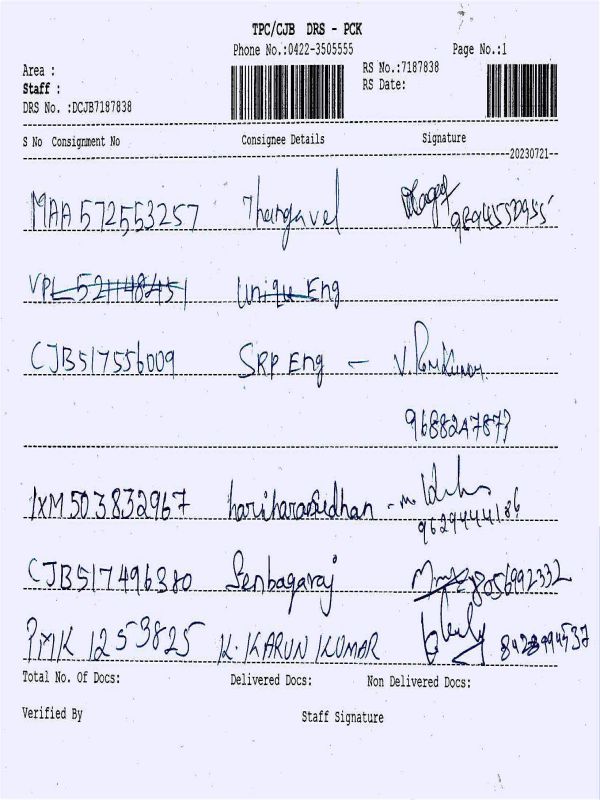 TPC/CJB DRS - PCK
Phone No.:0422-3505555 Page No.:1
Area : RS No.:7187838
Staff : RS Date:
DRS No. :DCJB7187838
S No Consignment No Consignee Details Signature
20230721
MAA 572553257 Thangavel 9894550955
VPL 521148451 Unique Eng
CJB517556009 SRP Eng - V. Ramkumar
9688247877
IXM503832967 hariharasudhan - m.
9629444186
CJB517496380 Senbagaraj 8056992332
PMK 1253825 K. KARUN KUMAR
Total No. Of Docs: Delivered Docs: Non Delivered Docs:
Verified By Staff Signature